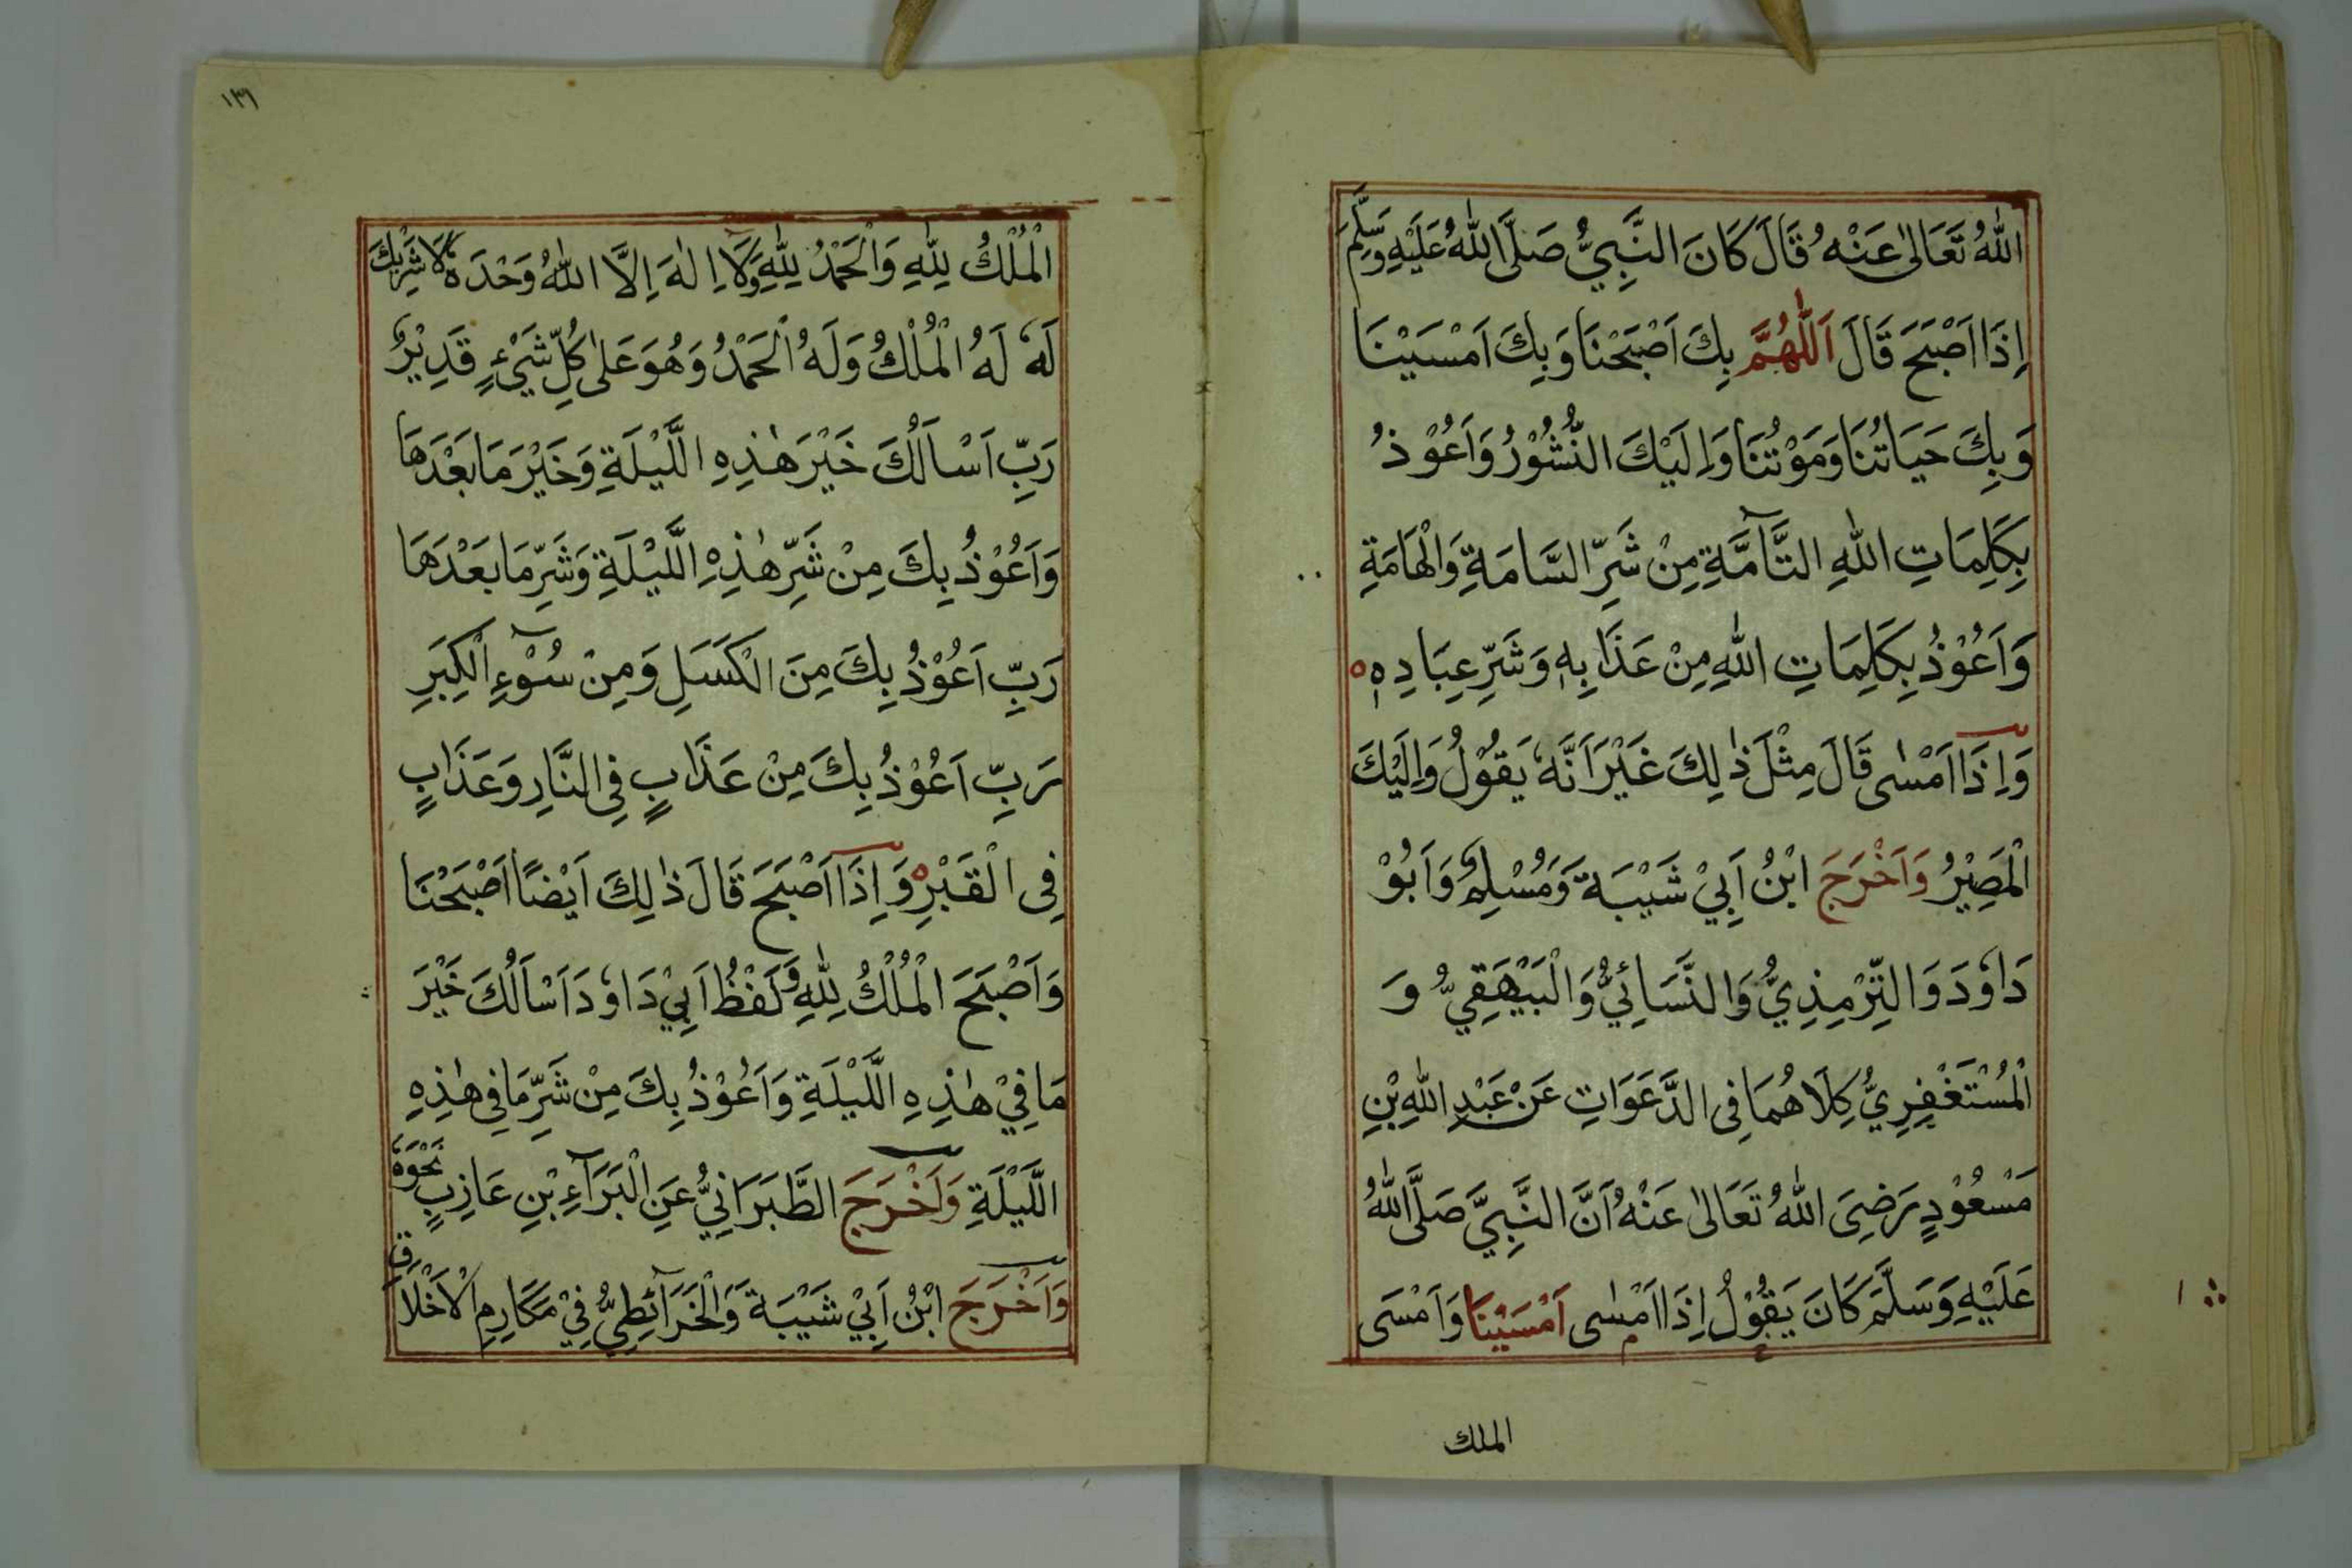 اللّٰهُ تَعَالٰى عَنْهُ قَالَ كَانَ النَّبِيُّ صَلَّى اللّٰهُ عَلَيْهِ وَسَلَّمَ
اِذَا اَصْبَحَ قَالَ اَللّٰهُمَّ بِكَ اَصْبَحْنَا وَبِكَ اَمْسَيْنَا
وَبِكَ حَيَاتُنَا وَمَوْتُنَا وَاِلَيْكَ النُّشُوْرُ وَاَعُوْذُ
بِكَلِمَاتِ اللّٰهِ التَّآمَّةِ مِنْ شَرِّ السَّامَةِ وَالْهَامَةِ
وَاَعُوْذُ بِكَلِمَاتِ اللّٰهِ مِنْ عَذَابِهٖ وَشَرِّ عِبَادِهٖ
وَاِذَا اَمْسٰى قَالَ مِثْلَ ذٰلِكَ غَيْرَ اَنَّهٗ يَقُوْلُ وَاِلَيْكَ
الْمَصِيْرُ وَاَخْرَجَ ابْنُ اَبِيْ شَيْبَةَ وَمُسْلِمٌ وَاَبُوْ
دَاوٗدَ وَالتِّرْمِذِيُّ وَالنَّسَائِيُّ وَالْبَيْهَقِيُّ وَ
الْمُسْتَغْفِرِيُّ كِلَاهُمَا فِى الدَّعَوَاتِ عَنْ عَبْدِ اللّٰهِ بْنِ
مَسْعُوْدٍ رَضِىَ اللّٰهُ تَعَالٰى عَنْهُ اَنَّ النَّبِيَّ صَلَّى اللّٰهُ
عَلَيْهِ وَسَلَّمَ كَانَ يَقُوْلُ اِذَا اَمْسٰى اَمْسَيْنَا وَاَمْسَى
الملك
١٣٦
الْمُلْكُ لِلّٰهِ وَالْحَمْدُ لِلّٰهِ وَلَا اِلٰهَ اِلَّا اللّٰهُ وَحْدَهٗ لَا شَرِيْكَ
لَهٗ لَهُ الْمُلْكُ وَلَهُ الْحَمْدُ وَهُوَ عَلٰى كُلِّ شَيْءٍ قَدِيْرٌ
رَبِّ اَسْاَلُكَ خَيْرَ هٰذِهِ اللَّيْلَةِ وَخَيْرَ مَا بَعْدَهَا
وَاَعُوْذُ بِكَ مِنْ شَرِّ هٰذِهِ اللَّيْلَةِ وَشَرِّ مَا بَعْدَهَا
رَبِّ اَعُوْذُ بِكَ مِنَ الْكَسَلِ وَمِنْ سُوْٓءِ الْكِبَرِ
رَبِّ اَعُوْذُ بِكَ مِنْ عَذَابٍ فِى النَّارِ وَعَذَابٍ
فِى الْقَبْرِ وَاِذَا اَصْبَحَ قَالَ ذٰلِكَ اَيْضًا اَصْبَحْنَا
وَاَصْبَحَ الْمُلْكُ لِلّٰهِ وَلَفْظُ اَبِيْ دَاوٗدَ اَسْاَلُكَ خَيْرَ
مَا فِيْ هٰذِهِ اللَّيْلَةِ وَاَعُوْذُ بِكَ مِنْ شَرِّ مَا فِى هٰذِهِ
اللَّيْلَةِ وَاَخْرَجَ الطَّبَرَانِيُّ عَنِ الْبَرَآءِ بْنِ عَازِبٍ نَحْوَهٗ
وَاَخْرَجَ ابْنُ اَبِيْ شَيْبَةَ وَالْخَرَآئِطِيُّ فِيْ مَكَارِمِ الْاَخْلَاقِ